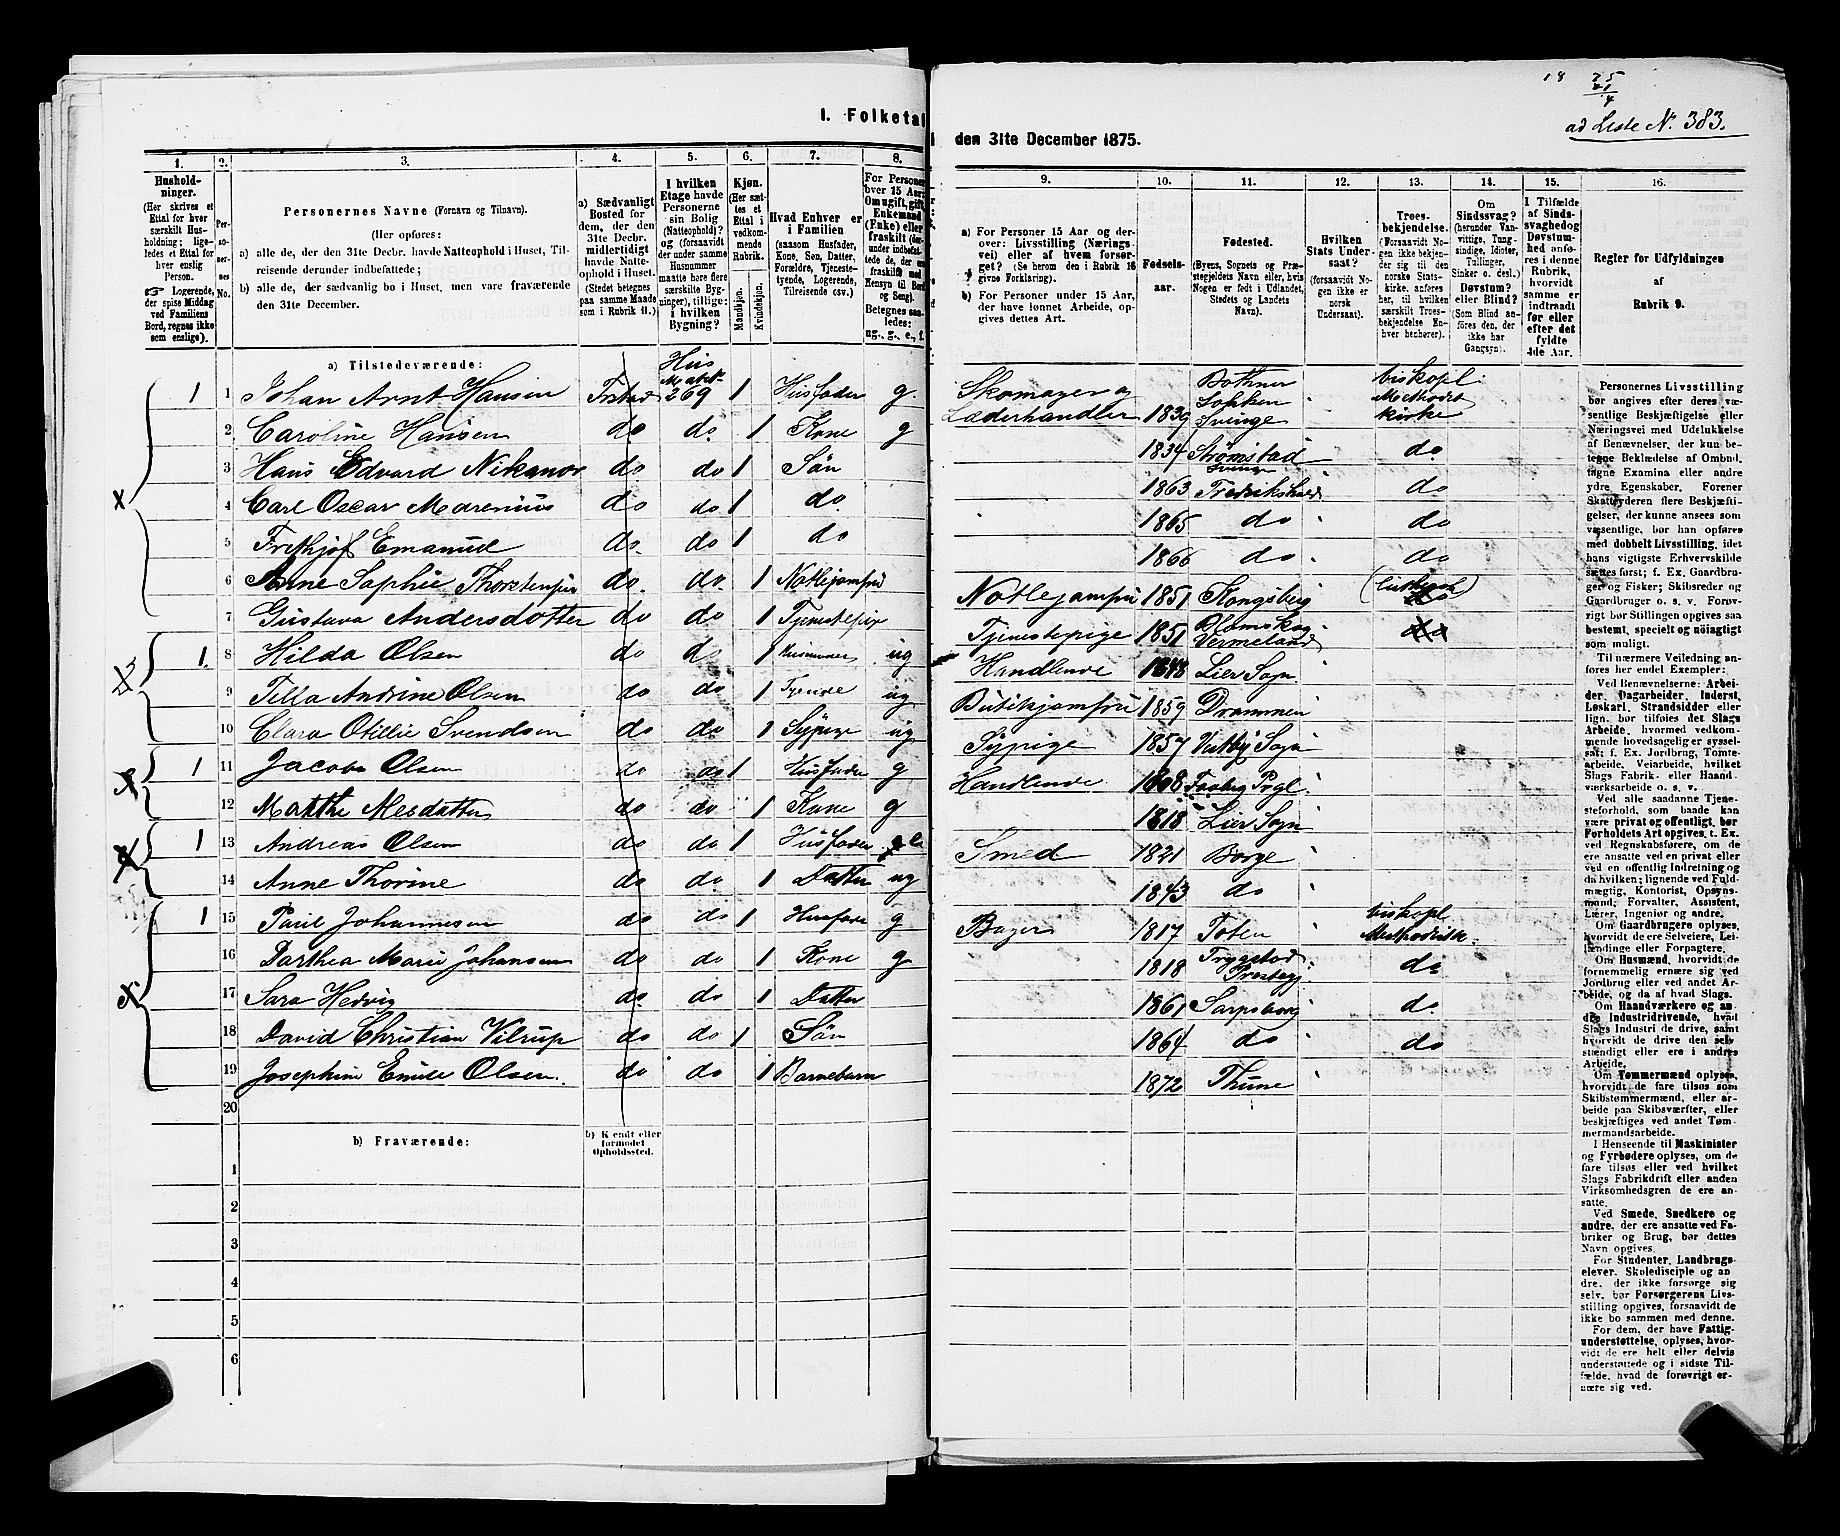 I. Folketal
1. 2. 3. 4. 5. 6. 7. 8.
Hushold-
ninger.
(Her skrives et
Ettal for hver
særskilt Hus-
holdning; lige-
ledes et Ettal for
hver enslig
Person.
Logerende,
der spise Middag
ved Familiens
Bord, regnes ikke
som enslige).
Personernes No.
Personernes Navne (Fornavn og Tilnavn).
(Her opføres:
a) alle de, der den 31te Decbr. havde Natteophold i Huset, Til-
reisende derunder indbefattede;
b) alle de, der sædvanlig bo i Huset, men vare fraværende
den 31te December.
a) Sædvanligt
Bosted for
dem, der den
31te Decbr.
midlertidigt
havde Natte-
ophold i Huset.
(Stedet betegnes
paa samme Maade
som i Rubrik 11.)
I hvilken
Etage havde
Personerne
sin Bolig
(Natteophold)?
og (forsaavidt
der under samme
Husnummer
maatte høre flere
særskilte Byg-
ninger), tillige:
i hvilken
Bygning?
Kjøn.
(Her sæt-
tes et
Ettal i
vedkom-
mende
Rubrik.
Mandkjøn.
Kvindekjøn.
Hvad Enhver er
i Familien
(saasom Husfader,
Kone, Søn, Datter,
Forældre, Tjeneste-
tyende, Logerende,
Tilreisende osv.)
a) Tilstedeværende:
Hus
Matr N.
1 1 Johan Arnt Hansen Frstad 269 1 Husfader g.
2 Caroline Hansen do do. 1 Kone g
3 Hans Edvard Nikanor do do 1 Søn
4 Carl Oscar Marenius do do 1 do.
5 Frithjof Emanuel do. do 1 do
6 Anne Sophie do. do. 1
7 Gustava Andersdotter do do 1
1. 8 Hilda Olsen do do 1 ug
9 Tilla Andrine Olsen do do 1 Tyende ug
10 Clara Otillie Svendsen do do 1 Sypige ug
1 11 Jacob Olsen do do 1 Husfader g
12 Mathe do do 1 Kone g
1 13 Andreas Olsen do do 1 Husfader e
14 Anne Thorine do do 1 Datter ug
1 15 Paul Johannesen do do 1 Husfader g
16 Dorthea Marie Johansen do do 1 Kone g
17 Sara Hedvig do. do 1 Datter
18 David Christian Vilrup do do 1 Søn
19 Josephine Emilie Olsen. do do 1 Barnebarn
20
b) Fraværende:
b) Kjendt eller
formodet
Opholdssted.
1
2
3
4
5
6
18 75
ad Liste N. 383.
den 31te December 1875.
9. 10. 11. 12. 13. 14. 15. 16.
a) For Personer 15 Aar og der-
over: Livsstilling (Nærings-
vei) eller af hvem forsør-
get? (Se herom den i Rubrik 16
givne Forklaring).
b) For Personer under 15 Aar,
der have lønnet Arbeide, op-
gives dettes Art.
Fødsels-
aar.
Fødested.
(Byens, Sognets og Præ-
stegjeldets Navn eller, hvis
Nogen er født i Udlandet,
Stedets og Landets
Navn).
Hvilken
Stats Under-
saat?
(forsaavidt No-
gen ikke er
norsk
Undersaat).
Troes-
bekjendelse.
(Forsaavidt No-
gen ikke bekjen-
der sig til den
norske Stats-
kirke, anføres
her, til hvilken
særskilt Troes-
bekjendelse En-
hver henhører).
Om
Sindssvag?
(herunder Van-
vittige, Tung-
sindige, Idioter,
Tullinger,
Sinker o. desl.)
Døvstum?
eller Blind?
(Som Blind an-
føres den, der
ikke har
Gangsyn).
I Tilfælde
af Sinds-
svaghed og
Døvstum-
hed anfø-
res i denne
Rubrik,
hvorvidt
samme er
indtraadt
før eller
efter det
fyldte
4de Aar.
Regler for Udfyldningen
af
Rubrik 9.
Skomager og
Læderhandler 1839 Sverige biskopl. Methodist kirke
1834 Strømstad Sverige do
1863 Fredrikshald do
1865 do do
1866 do do
1851 Kongsberg
Tjenestepige 1851 Vermeland
Handlende 1848 Lier Sogn
Butikjomfru 1859 Drammen
Sypige 1857 Vestby Sogn
Handlende 1808 Faaberg Prgl.
1818 Lier Sogn
Smed 1821 Borge
1843 do
Bager 1817 Toten biskopl Methodistk.
1818 Trygstad Prestegj. do
1861 Sarpsborg do
1864 do do
1872 Thune
Personernes Livsstilling
bør angives efter deres væ-
sentlige Beskjæftigelse eller
Næringsvei med Udelukkelse
af Benævnelser, der kun be-
tegne Beklædelse af Ombud,
tagne Examina eller andre
ydre Egenskaber. Forener
Skatteyderen flere Beskjæfti-
gelser, der kunne ansees som
væsentlige, bør han opføres
med dobbelt Livsstilling, idet
hans vigtigste Erhvervskilde
sættes først; f. Ex. Gaardbru-
ger og Fisker; Skibsreder og
Gaardbruger o. s. v. Forøv-
rigt bør Stillingen opgives saa
bestemt, specielt og nøiagtigt
som muligt.
Til nærmere Veiledning an-
føres her endel Exempler:
Ved Benævnelserne: Arbei-
der, Dagarbeider, Inderst,
Løskarl, Strandsidder eller
lign. bør tilføies det Slags
Arbeide, hvormed vedkom-
mende hovedsagelig er syssel-
sat; f. Ex. Jordbrug, Tomte-
arbeide, Veiarbeide, hvilket
Slags Fabrik- eller Haand-
værksarbeide o. s. v.
Ved alle saadanne Tjene-
steforhold, som baade kan
være privat og offentligt, bør
Forholdets Art opgives, t. Ex.
ved Regnskabsførere, om de
ere ansatte ved en privat eller
en offentlig Indretning og
da hvilken; lignende ved Fuld-
mægtig, Kontorist, Opsyns-
mand, Forvalter, Assistent,
Lærer, Ingeniør og andre.
Om Gaardbrugere oplyses,
hvorvidt de ere Selveiere, Lei-
lændinge eller Forpagtere.
Om Husmænd, hvorvidt de
fornemmelig ernære sig ved
Jordbrug eller ved andet Ar-
beide, og da af hvad Slags.
Om Haandværkere og an-
dre Industridrivende, hvad
Slags Industri de drive, samt
hvorvidt de drive den selv-
stændigt eller ere i andres
Arbeide.
Om Tømmermænd oplyses,
hvorvidt de fare tilsøs som
Skibstømmermænd, eller ar-
beide paa Skibsværfter, eller
beskjæftiges ved andet Tøm-
mermandsarbeide.
I Henseende til Maskinister
og Fyrbødere oplyses, om de
fare tilsøs eller ved hvilket
Slags Fabrikdrift eller anden
Virksomhedsgren de ere an-
satte.
Ved Smede, Snedkere og
andre, der ere ansatte ved Fa-
briker og Brug, bør dettes
Navn opgives.
For Studenter, Landbrugs-
elever, Skoledisciple og an-
dre, der ikke forsørge sig
selv, bør Forsørgerens Livs-
stilling opgives, forsaavidt de
ikke bo sammen med denne.
For dem, der have Fattig-
understøttelse, oplyses, hvor-
vidt de ere helt eller delvis
understøttede og i sidste Til-
fælde, hvad de forøvrigt er-
nære sig ved.